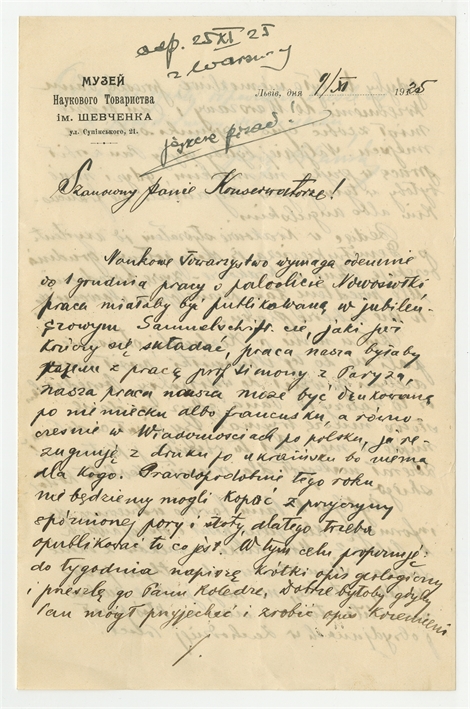 odp. 25 XI 25
z Warszawy
МУЗЕЙ
Наукового Товариства
ім. ШЕВЧЕНКА
ул. Супінського, 21.
Львів, дня 9/XI 1925
jeszcze przed!
Szanowny Panie Konserwatorze!
Naukowe Towarzystwo wymaga odemnie
do 1 grudnia pracy o paleolicie Nowosiółki
praca miałaby być publikowaną w jubileu-
szowym Sammelschrift, jaki już
kończy się składać, praca nasza byłaby
razem z pracą prof. Simony z Paryża,
nasza praca może być drukowaną
po niemiecku albo francusku, a równo-
cześnie w Wiadomościach po polsku, ja re-
zygnuję z druku po ukraińsku bo niema
dla kogo. Prawdopodobnie tego roku
nie będziemy mogli kopać z przyczyny
spóźnionej pory i słoty, dlatego trzeba
opublikować to co jest. W tym celu proponuję:
do tygodnia napiszę krótki opis geologiczny
i prześlę go Panu Koledze. Dobrze byłoby gdyby
Pan mógł przyjechać i zrobić opis krzemieni